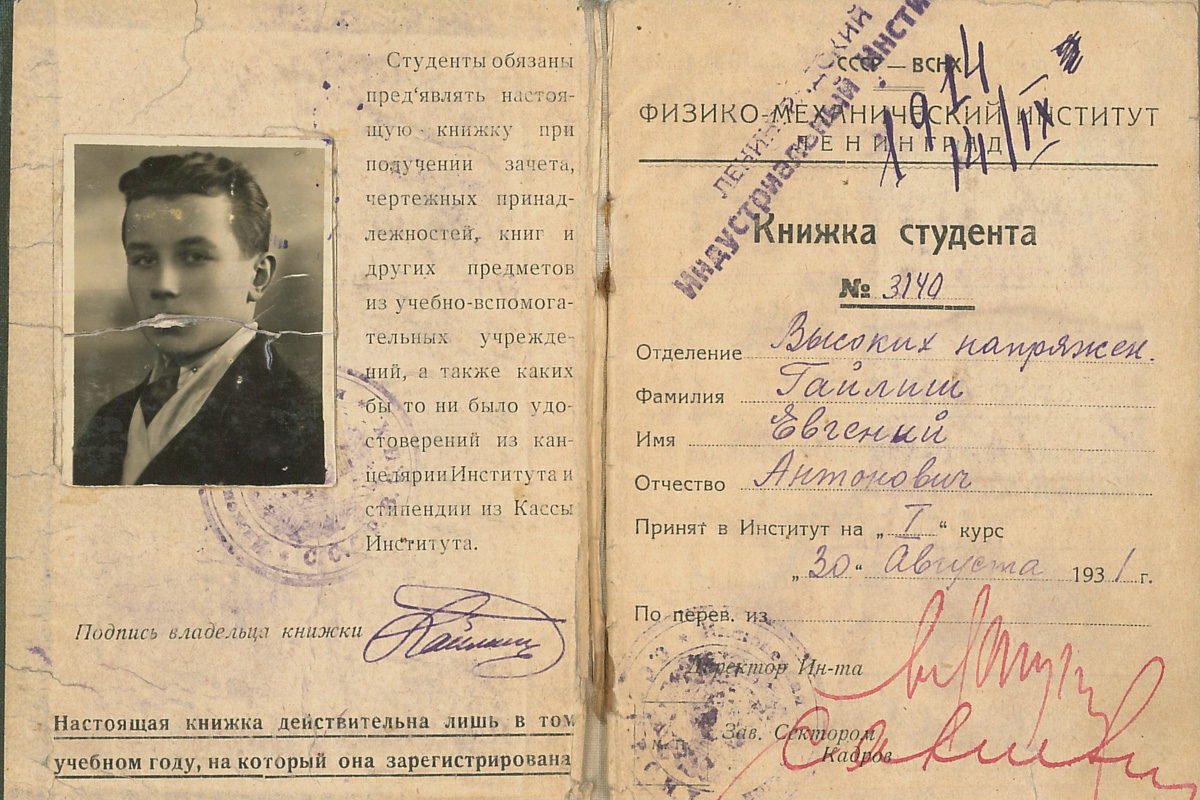 Студенты обязаны
пред'являть настоя-
щую книжку при
получении зачета,
чертежных принад-
лежностей, книг и
других предметов
из учебно-вспомога-
тельных учрежде-
ний, а также каких
бы то ни было удо-
стоверений из кан-
целярии Института и
стипендии из Кассы
Института.
Подпись владельца книжки
Гайлиш
Настоящая книжка действительна лишь в том
учебном году, на который она зарегистрирована
СССР — ВСНХ
ФИЗИКО-МЕХАНИЧЕСКИЙ ИНСТИТУТ
ЛЕНИНГРАД
ЛЕНИНГРАДСКИЙ
ИНДУСТРИАЛЬНЫЙ ИНСТИ
14/IX
Книжка студента
№ 3140
Отделение Высоких напряжен.
Фамилия Гайлиш
Имя Евгений
Отчество Антонович
Принят в Институт на „I“ курс
„30“ Августа 1931 г.
По перев. из
Директор Ин-та
Зав. Сектором
Кадров